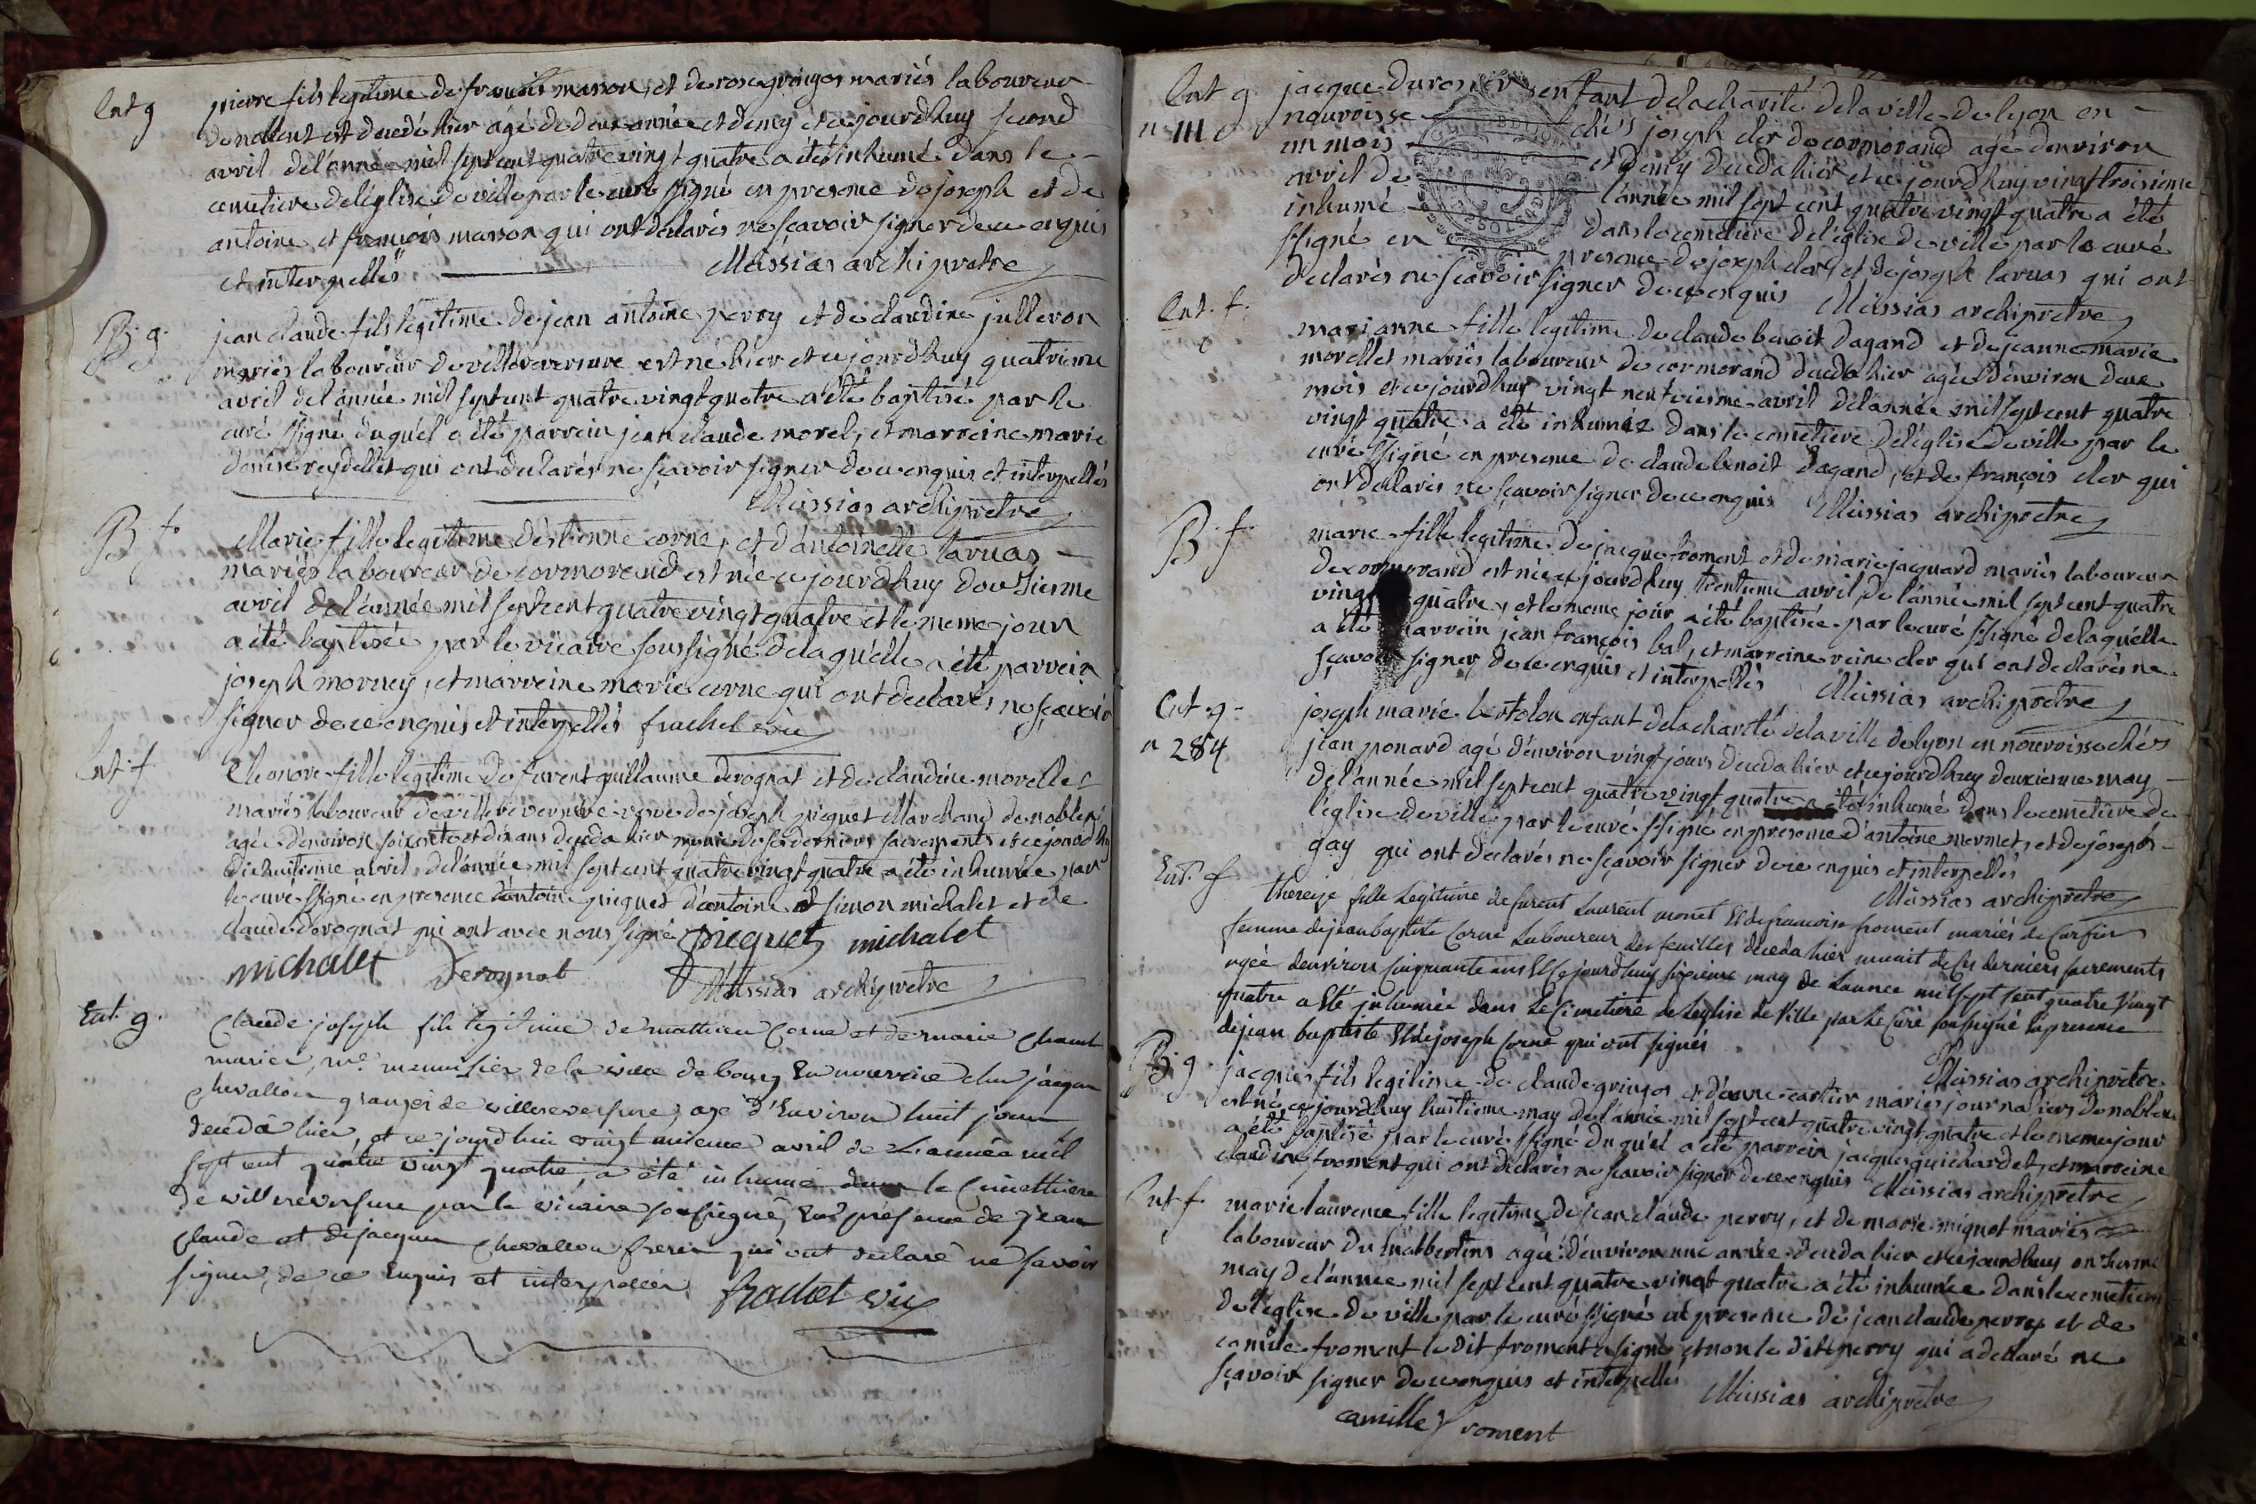 Ent g
pierre fils legitime de françois marron, et de rose gringoz mariés laboureur
de nallent est décédé hier agé de deux année et demy et cejourdhuy second
avril de l'année mil sept cent quatre vingt quatre a été inhumé dans le
cemetiere de l'église de ville par le curé ssigné en presence de joseph et de
antoine et françois marron qui ont déclarés ne sçavoir signer de ce enquis
et interpellés
Messias archiprêtre
B. g.
jean claude fils legitime de jean antoine perry et de claudine julleron
mariés laboureur de villereversure est né hier et cejourdhuy quatrieme
avril de l'année mil sept cent quatre vingt quatre a été baptisé par le
curé ssigné duquel a été parrein jean claude morel, et marreine marie
denise reydellet qui ont déclarés ne sçavoir signer de ce enquis et interpellés
Messias archiprêtre
B f.
Marie fille legitime d'estienne corne, et d'antoinette laruas
mariés laboureur de cormorand est née cejourdhuy douzieme
avril de l'année mil sept cent quatre vingt quatre et le meme jour
a été baptisée par le vicaire soussigné de laquelle a été parrein
joseph morney, et marreine marie corne qui ont déclarés ne sçavoir
signer de ce enquis et interpellés frachet vic
Ent. f
Eleonore fille legitime de furent guillaume derognat et de claudine morellet
mariés laboureur de villereversure veuve de joseph picquet Marchand de noblens
agée d'environ soixante et dix ans deceda hier munie de ses derniers sacrements et cejourdhuy
dixhuitieme avril de l'année mil sept cent quatre vingt quatre a été inhumée par
le curé ssigné en presence d'antoine picquet d'antoine et simon michalet et de
claude derognat qui ont avec nous signé picquet michalet
michalet Derognat Messias archiprêtre
Ent. g.
Claude joseph fils legitime de mathieu Corne et de marie
mariés, me. menuisier de la ville de bourg En nourrice chez jacques
chevallon granger de villereversure, agé d'Environ huit jours
deceda hier, et ce jourdhui vingt unieme avril de L'année mil
sept cent quatre vingt quatre, a été inhumé dans le Cimettiere
de villereversure par le vicaire soussigné, En presence de jean
claude et de jacques chevallon freres qui ont declaré ne savoir
signer, de ce Enquis et interpellés frachet vic
Ent g
n III
jacque durosier enfant de la charité de la ville de lyon en
nourisse chés joseph cler de cormorand agé d'environ
un mois et demy deceda hier et ce jourdhuy vingt troisieme
avril de l'année mil sept cent quatre vingt quatre a été
inhumé dans le cemetiere de l'église de ville par le curé
ssigné en presence de joseph cler, et de joseph laruas qui ont
declarés ne sçavoir signer de ce enquis Messias archiprêtre
Ent. f.
marianne fille legitime de claude benoit dagand et de jeanne marie
morellet mariés laboureur de cormorand deceda hier agée d'environ deux
mois et cejourdhuy vingt neufvieme avril de l'année mil sept cent quatre
vingt quatre a été inhumée dans le cemetiere de l'église de ville par le
curé ssigné en presence de claude benoit dagand, et de françois cler qui
ont declarés ne sçavoir signer de ce enquis Messias archiprêtre
B. f.
marie fille legitime de jacque froment et de marie jacquard mariés laboureur
de cormorand est née cejourdhuy trentieme avril de l'année mil sept cent quatre
vingt quatre, et le meme jour a été baptisée par le curé ssigné de laquelle
a été parrein jean françois bal, et marreine reine cler qui ont declarés ne
sçavoir signer de ce enquis et interpellés Messias archiprêtre
Ent. g.
n 284
joseph marie bertolon enfant de la charité de la ville de lyon en nourrisse chés
jean ponard agé d'environ vingt jours deceda hier et cejourdhuy deuxieme may
de l'année mil sept cent quatre vingt quatre a été inhumé dans le cemetiere de
l'église de ville par le curé ssigné en presence d'antoine mermet, et de joseph
gay qui ont declarés ne sçavoir signer de ce enquis et interpellés
Messias archiprêtre
Ent. f
thereze fille Legitime de furent Laurent monet Et de francoise froment mariés de
femme de jean baptiste Corne Laboureur des feuilles deceda hier munit de ses derniers sacrements
agée denviron cinquante ans Et ce jourdhuy sixieme may de Lannee mil sept cent quatre Vingt
quatre a Eté inhumée dans Le Cimetiere de Leglise de Ville par Le Curé soussigné En presence
de jean baptiste Et de joseph Corne qui ont signés
Messias archiprêtre
B. g
jacques fils legitime de claude gringoz et d'anne cartier mariés journaliers de noblens
est né cejourdhuy huitieme may de l'année mil sept cent quatre vingt quatre et le meme jour
a été baptisé par le curé ssigné duquel a été parrein jacques guichardet, et marreine
claudine froment qui ont declarés ne sçavoir signer de ce enquis Messias archiprêtre
Ent. f.
marie laurence fille legitime de jean claude perry, et de marie mignot mariés
laboureur du agée d'environ une année deceda hier et cejourdhuy onzieme
may de l'année mil sept cent quatre vingt quatre a été inhumée dans le cemetiere
de l'église de ville par le curé ssigné en presence de jean claude perry et de
camille froment le dit froment a signé, et non le dit perry qui a declaré ne
sçavoir signer de ce enquis et interpellés Messias archiprêtre
camille froment